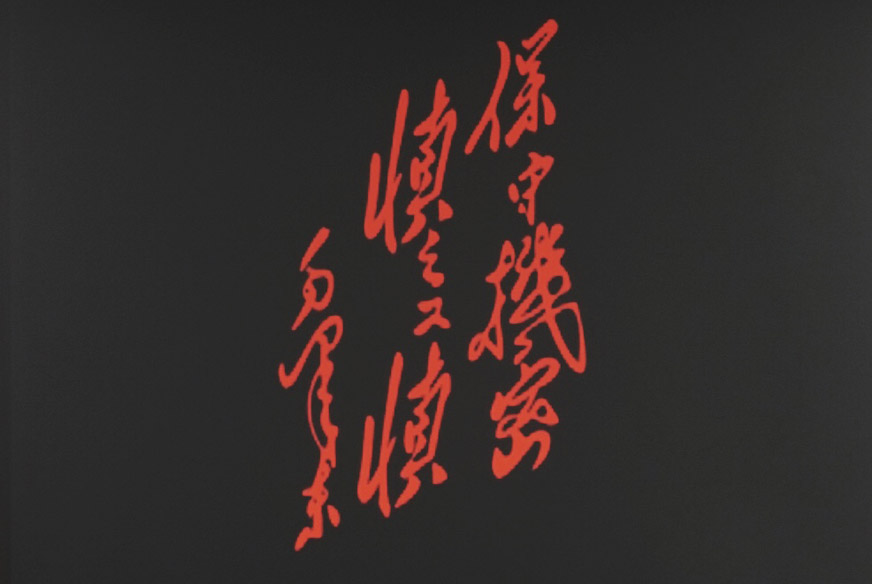 保守機密
慎之又慎
毛澤东